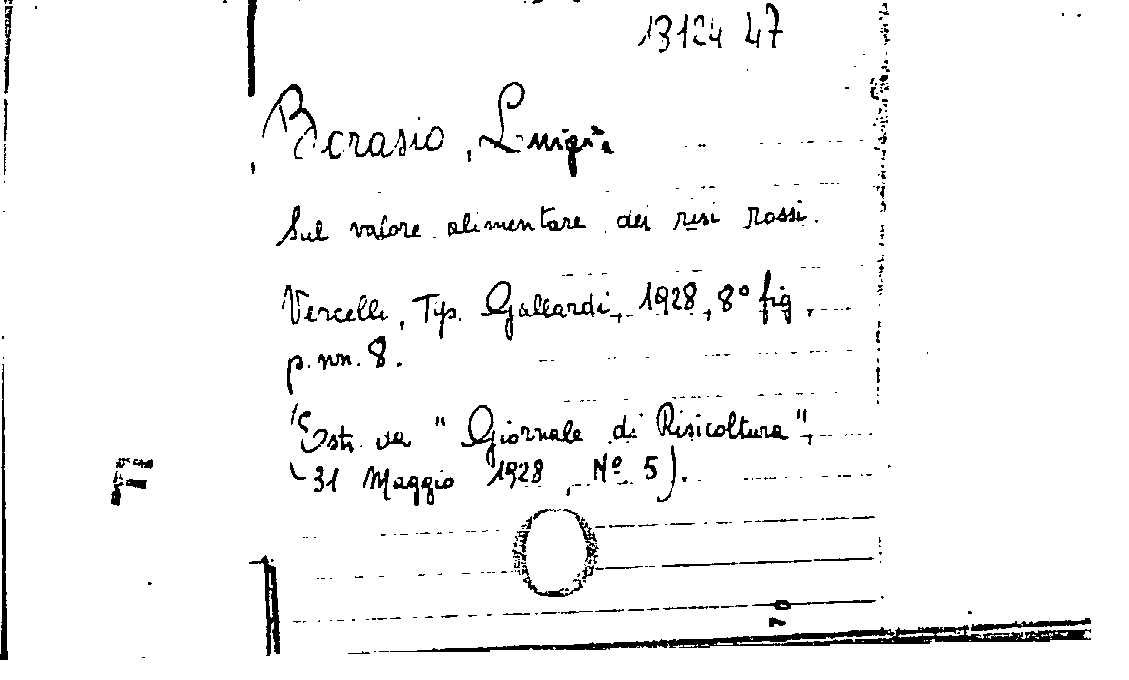 13124 47
Borasio, Luigi
Sul valore alimentare dei risi rossi.
Vercelli, Tip. Gallardi, 1928, 8º fig.
p. nn. 8.
(Estr. da "Giornale di Risicoltura",
31 Maggio 1928, Nº 5).
F
70